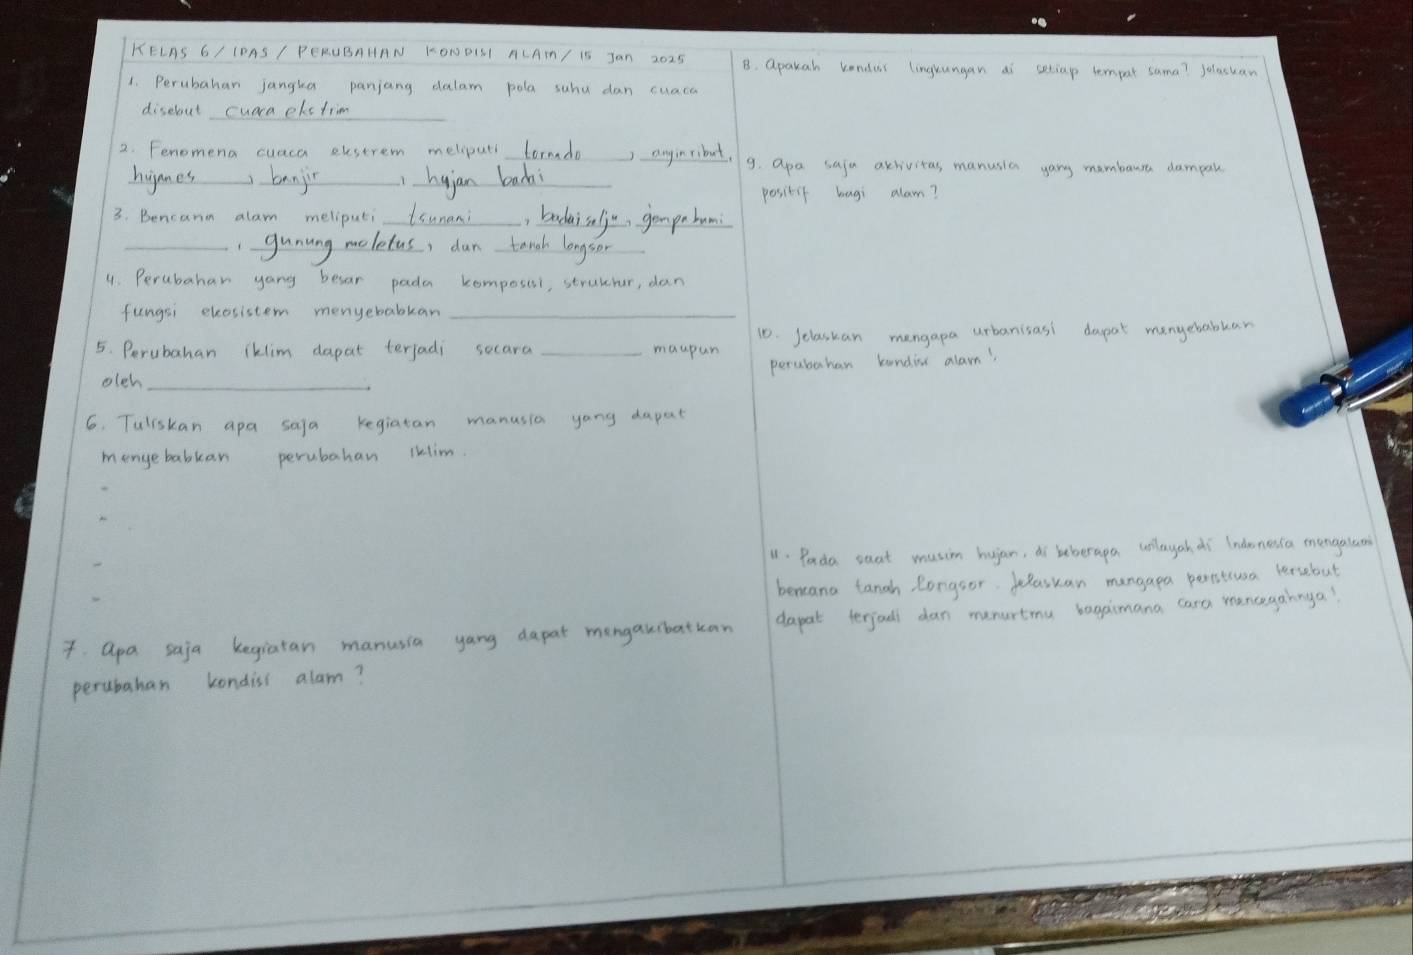 KELAS 6 / IPAS / PERUBAHAN KONDISI ALAM / 15 Jan 2025
1. Perubahan jangka panjang dalam pola suhu dan cuaca
disebut cuaca ekstrim
2. Fenomena cuaca ekstrem meliputi tornado, angin ribut,
hujan es, banjir, hujan badai
3. Bencana alam meliputi tsunami, badai salju, gempa bumi
, gunung meletus, dan tanah longsor
4. Perubahan yang besar pada komposisi, struktur, dan
fungsi ekosistem menyebabkan
5. Perubahan iklim dapat terjadi secara maupun
oleh .
6. Tuliskan apa saja kegiatan manusia yang dapat
menyebabkan perubahan iklim.
-
-
-
-
7. Apa saja kegiatan manusia yang dapat mengakibatkan
perubahan kondisi alam?
8. Apakah kondisi lingkungan di setiap tempat sama? Jelaskan
9. Apa saja aktivitas manusia yang membawa dampak
positif bagi alam?
10. Jelaskan mengapa urbanisasi dapat menyebabkan
perubahan kondisi alam!
11. Pada saat musim hujan, di beberapa wilayah di Indonesia mengalami
bencana tanah longsor. Jelaskan mengapa peristiwa tersebut
dapat terjadi dan menurtmu bagaimana cara mencegahnya!